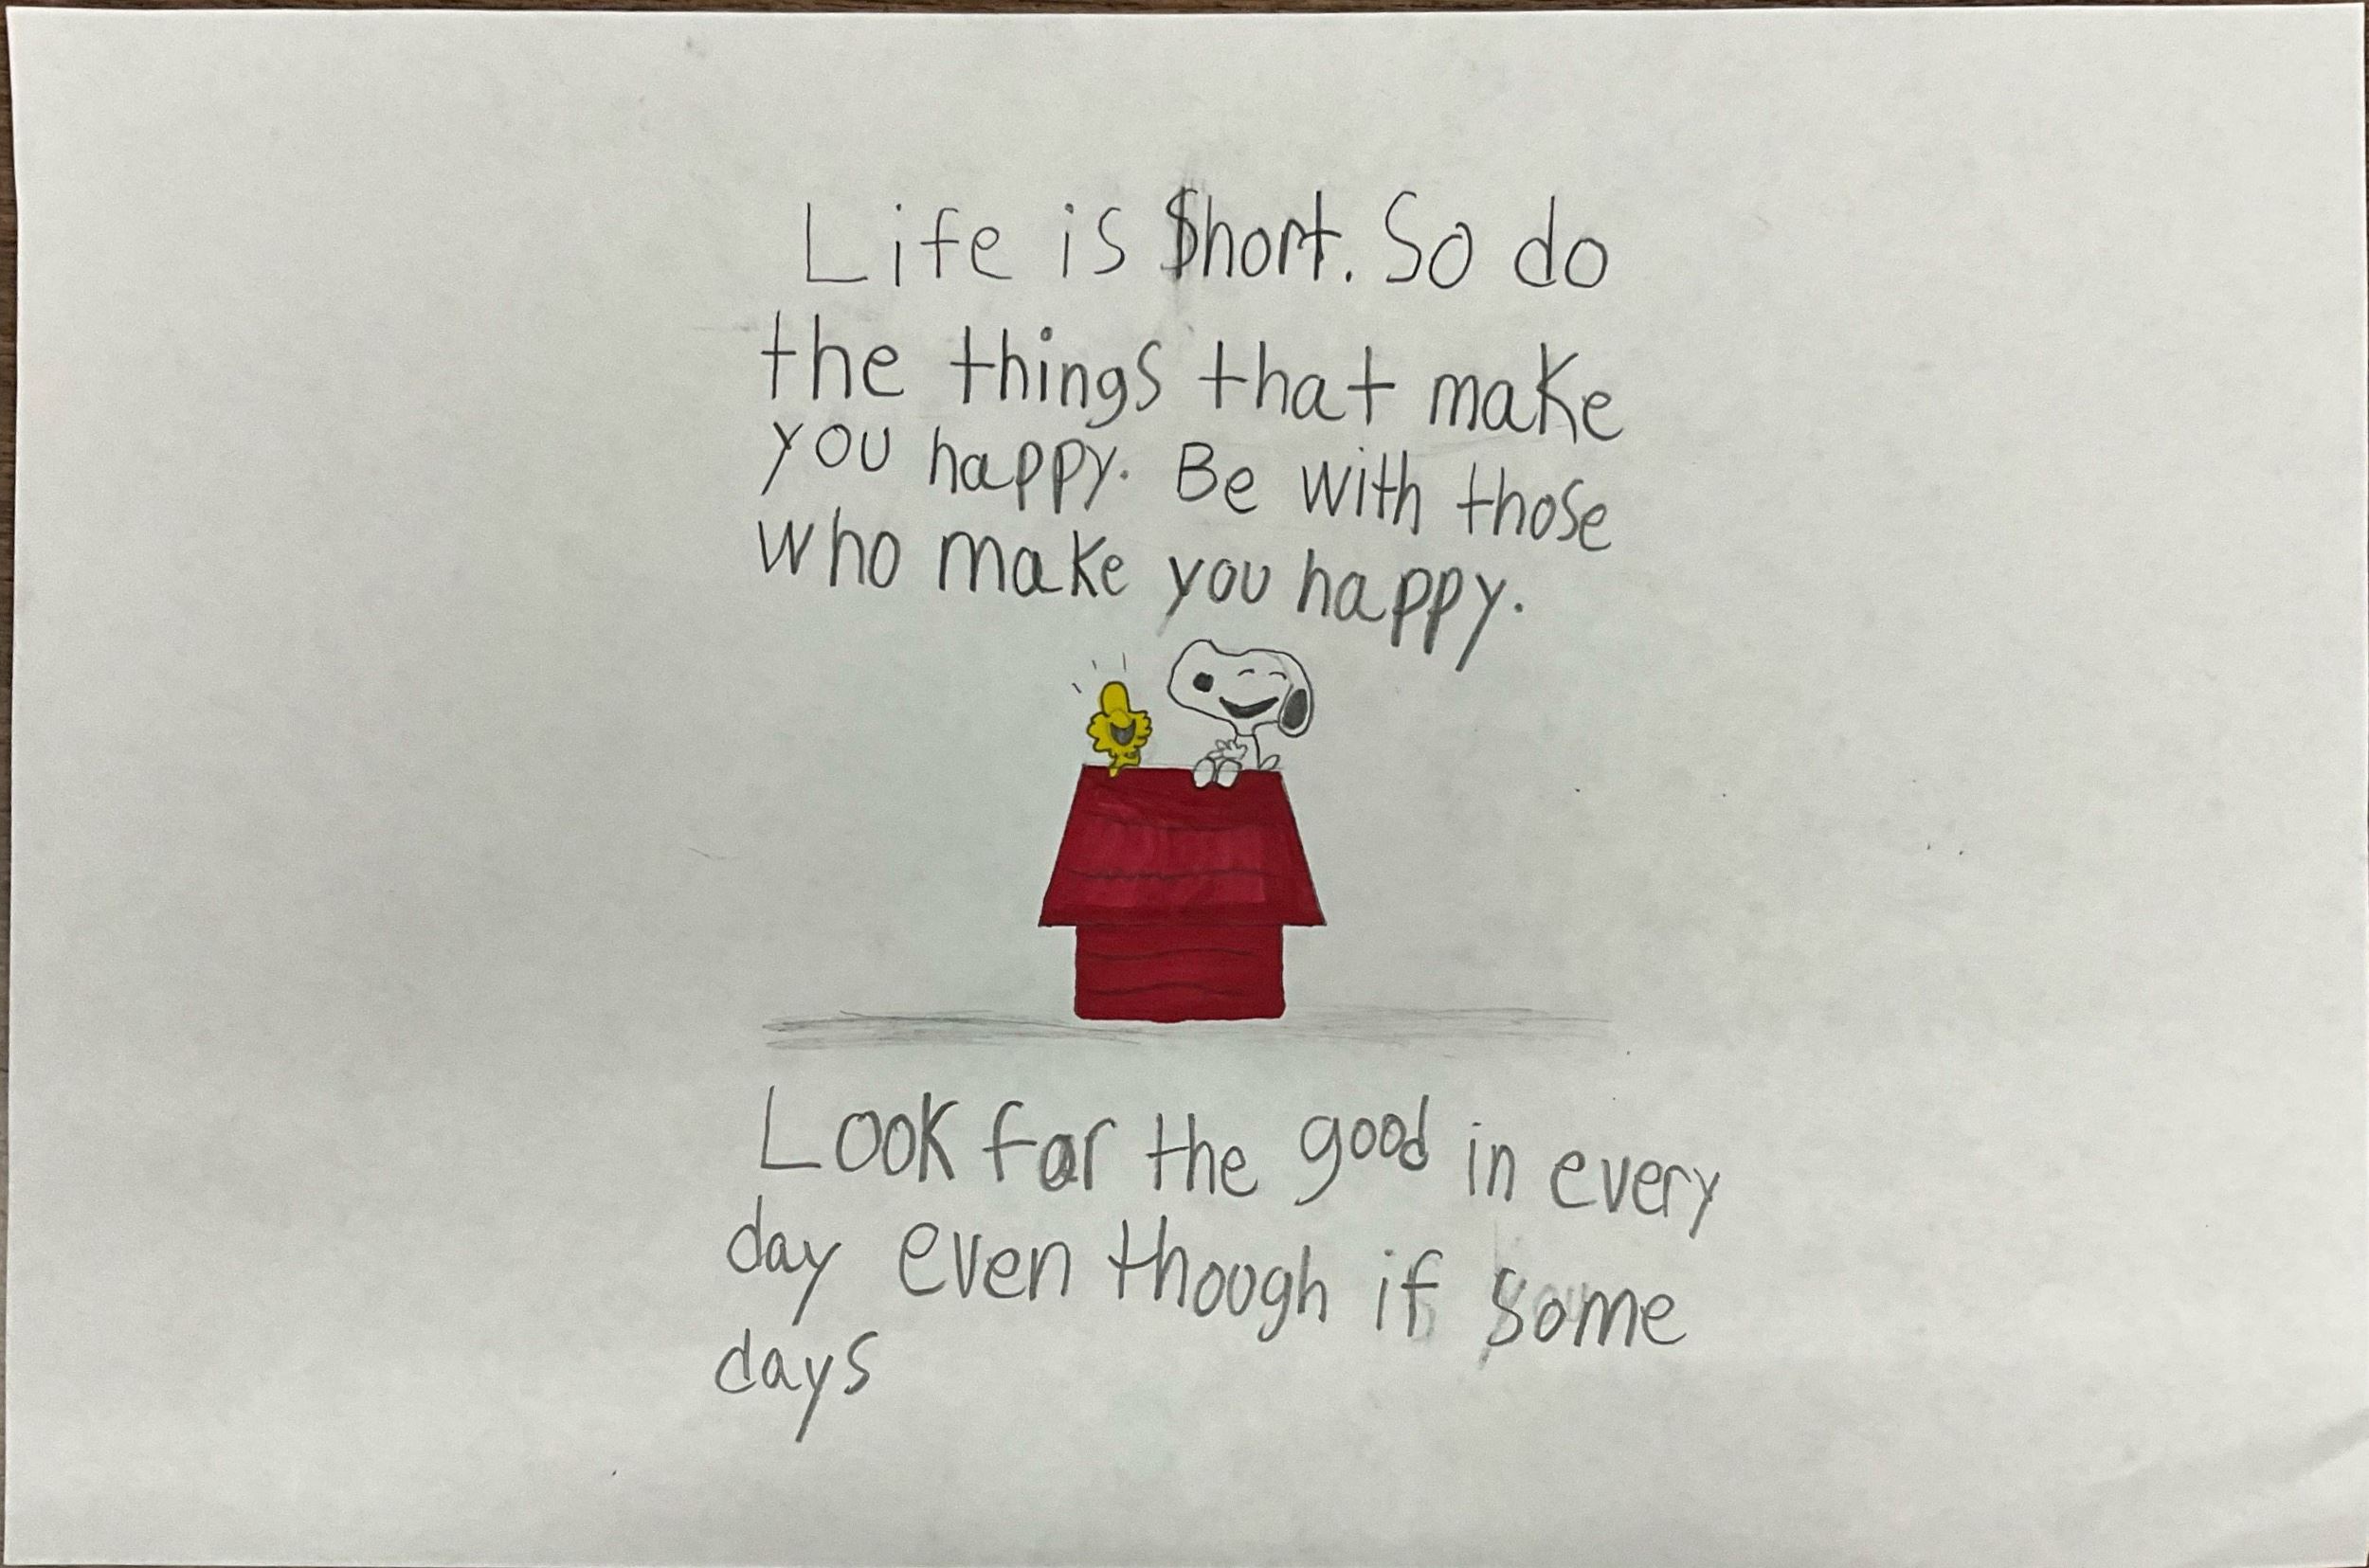 Life is Short. So do
the things that make
you happy. Be with those
who make you happy.
Look for the good in every
day even though if some
days